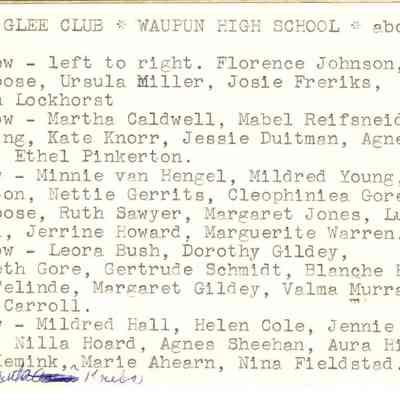 GLEE CLUB * WAUPUN HIGH SCHOOL * abo
ow - left to right. Florence Johnson,
oose, Ursula Miller, Josie Freriks,
Lockhorst
ow - Martha Caldwell, Mabel Reifsneid
ng, Kate Knorr, Jessie Duitman, Agne
Ethel Pinkerton.
- Minnie van Hengel, Mildred Young,
on, Nettie Gerrits, Cleophiniea Gore
oose, Ruth Sawyer, Margaret Jones, Lu
, Jerrine Howard, Marguerite Warren.
ow - Leora Bush, Dorothy Gildey,
eth Gore, Gertrude Schmidt, Blanche
Telinde, Margaret Gildey, Valma Murra
Carroll.
- Mildred Hall, Helen Cole, Jennie
Nilla Hoard, Agnes Sheehan, Aura Hi
emink, Marie Ahearn, Nina Fieldstad.